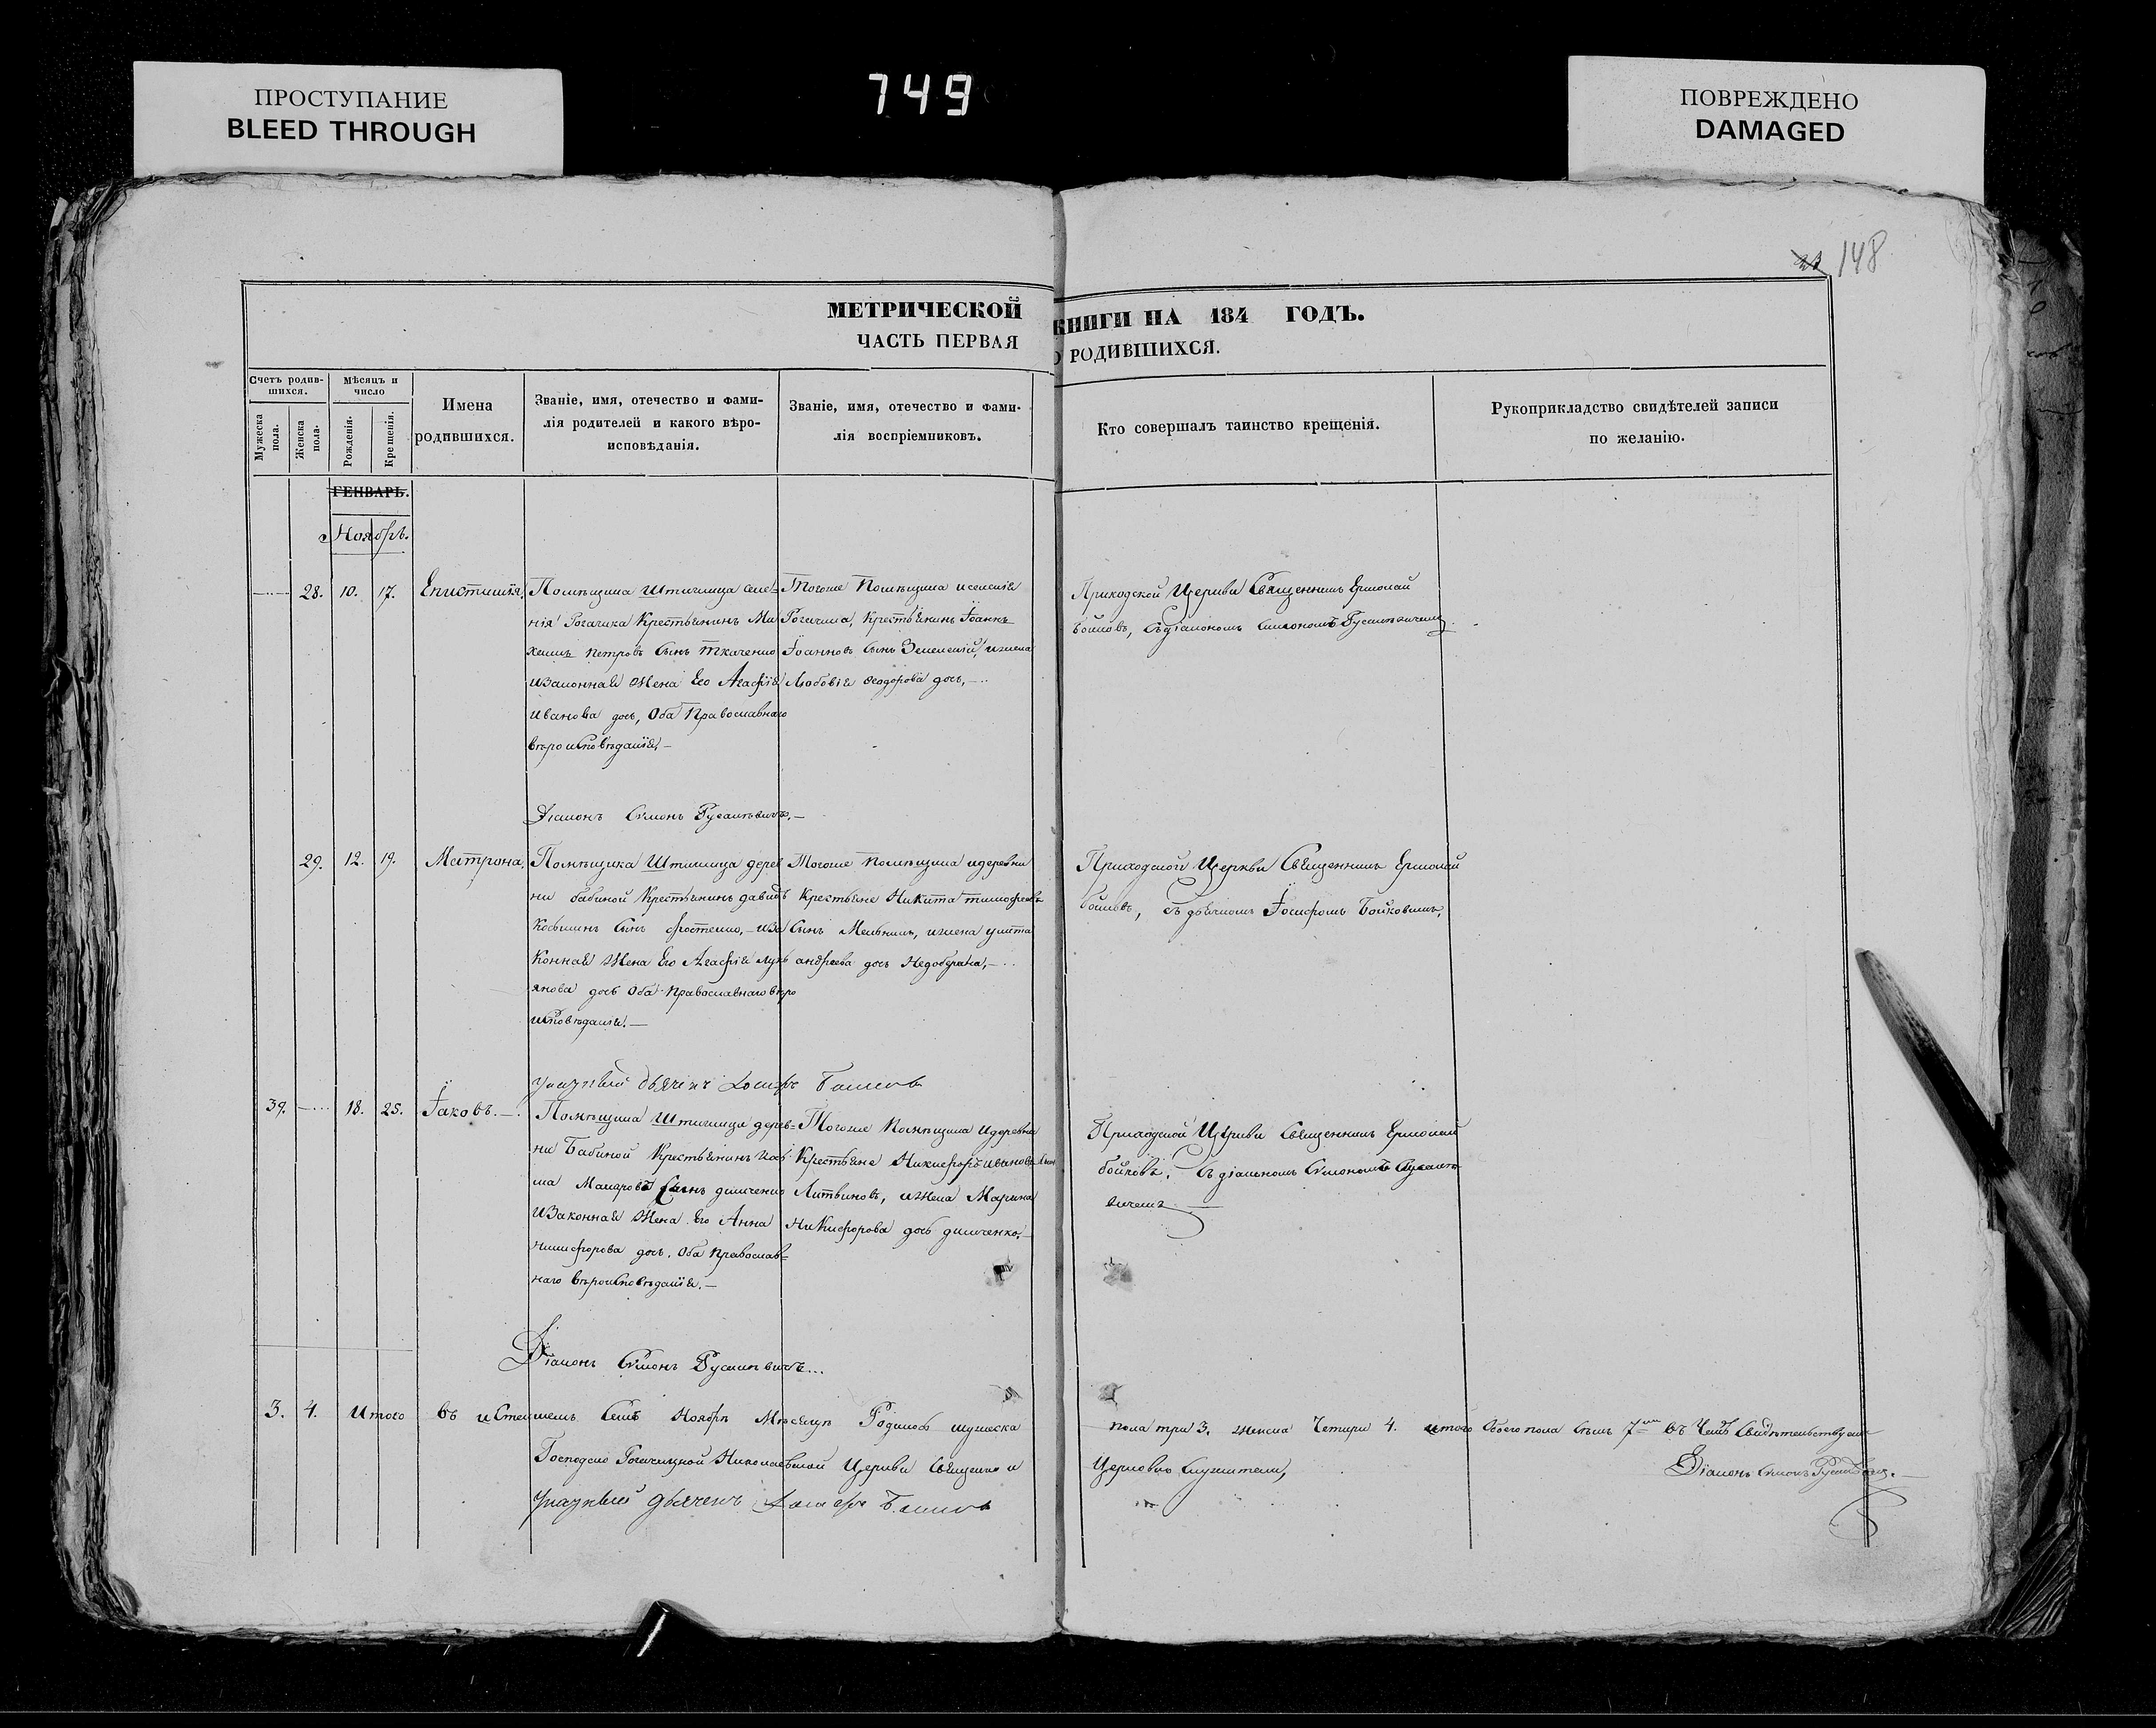 ПРОСТУПАНИЕ
BLEED THROUGH
749
ПОВРЕЖДЕНО
DAMAGED
148
МЕТРИЧЕСКОЙ КНИГИ НА 184 ГОДЪ.
ЧАСТЬ ПЕРВАЯ О РОДИВШИХСЯ.
Счетъ родив-
шихся.
Мужеска пола.
Женска пола.
Мѣсяцъ и
число
Рожденія.
Крещенія.
Имена
родившихся.
Званіе, имя, отечество и фами-
лія родителей и какого вѣро-
исповѣданія.
Званіе, имя, отечество и фами-
лія воспріемниковъ.
Кто совершалъ таинство крещенія.
Рукоприкладство свидѣтелей записи
по желанію.
ГЕНВАРЬ.
Ноябрь.
28. 10. 17. Епистимія,
Помѣщика Штиглица селе-
нія Рогачика Крестьянинъ Ми
хаилъ Петровъ Сынъ Ткаченко
изаконная Жена Его Агафія
Иванова дочь, Оба Православнаго
вѣроисповѣданія.—
Тогоже Помѣщика иселенія
Рогачика, Крестьянинъ Іоаннъ
Іоанновъ Сынъ ижена
Любовія Феодорова дочь,—
Приходской Церкви Священникъ Ермолай
Бойковъ, съдіакономъ Симономъ
Діаконъ Симонъ
29. 12. 19. Матрона,
Помѣщика Штиглица дерев
ни Бабиной Крестьянинъ давидъ
Косьминъ Сынъ Фостенко,— иза
Конная Жена Его Агафія Лукь
янова дочь Оба Православнаго вѣро
исповѣданія.—
Тогоже помѣщика идеревни
Крестьяне Никита тимофеевъ
Сынъ Мельникъ, ижена улита
андреева дочь
Приходской Церкви Священникъ Ермолай
Бойковъ, съ дьячкомъ Іосифомъ Бойковымъ,
Указный дьячекъ Іосифъ Бойковъ
39. 18. 25. Іаковъ.—
Помѣщика Штиглица дерев=
ни Бабиной Крестьянинъ
Макаровъ Сынъ
изаконная Жена Его Анна
Никифорова дочь. Оба Православ=
наго вѣроисповѣданія.—
Тогоже Помѣщика идеревни
Крестьяне Никифоръ ивановъ сын
Литвиновъ, ижена Марина
Никифорова дочь
Приходской Церкви Священникъ Ермолай
Бойковъ, съ діакономъ Симономъ
Діаконъ Симонъ
3. 4. Итого въ истекшемъ Семъ Ноябрѣ Мѣсяцѣ Родилось мужеска пола три 3. женска Четыри 4. итого обоего пола семь 7 въ Чемъ Свидѣтельствуемъ
Николаевской Церкви Священно и Церковно служители,
Діаконъ Симонъ
Указный дьячекъ Іосифъ Бойковъ